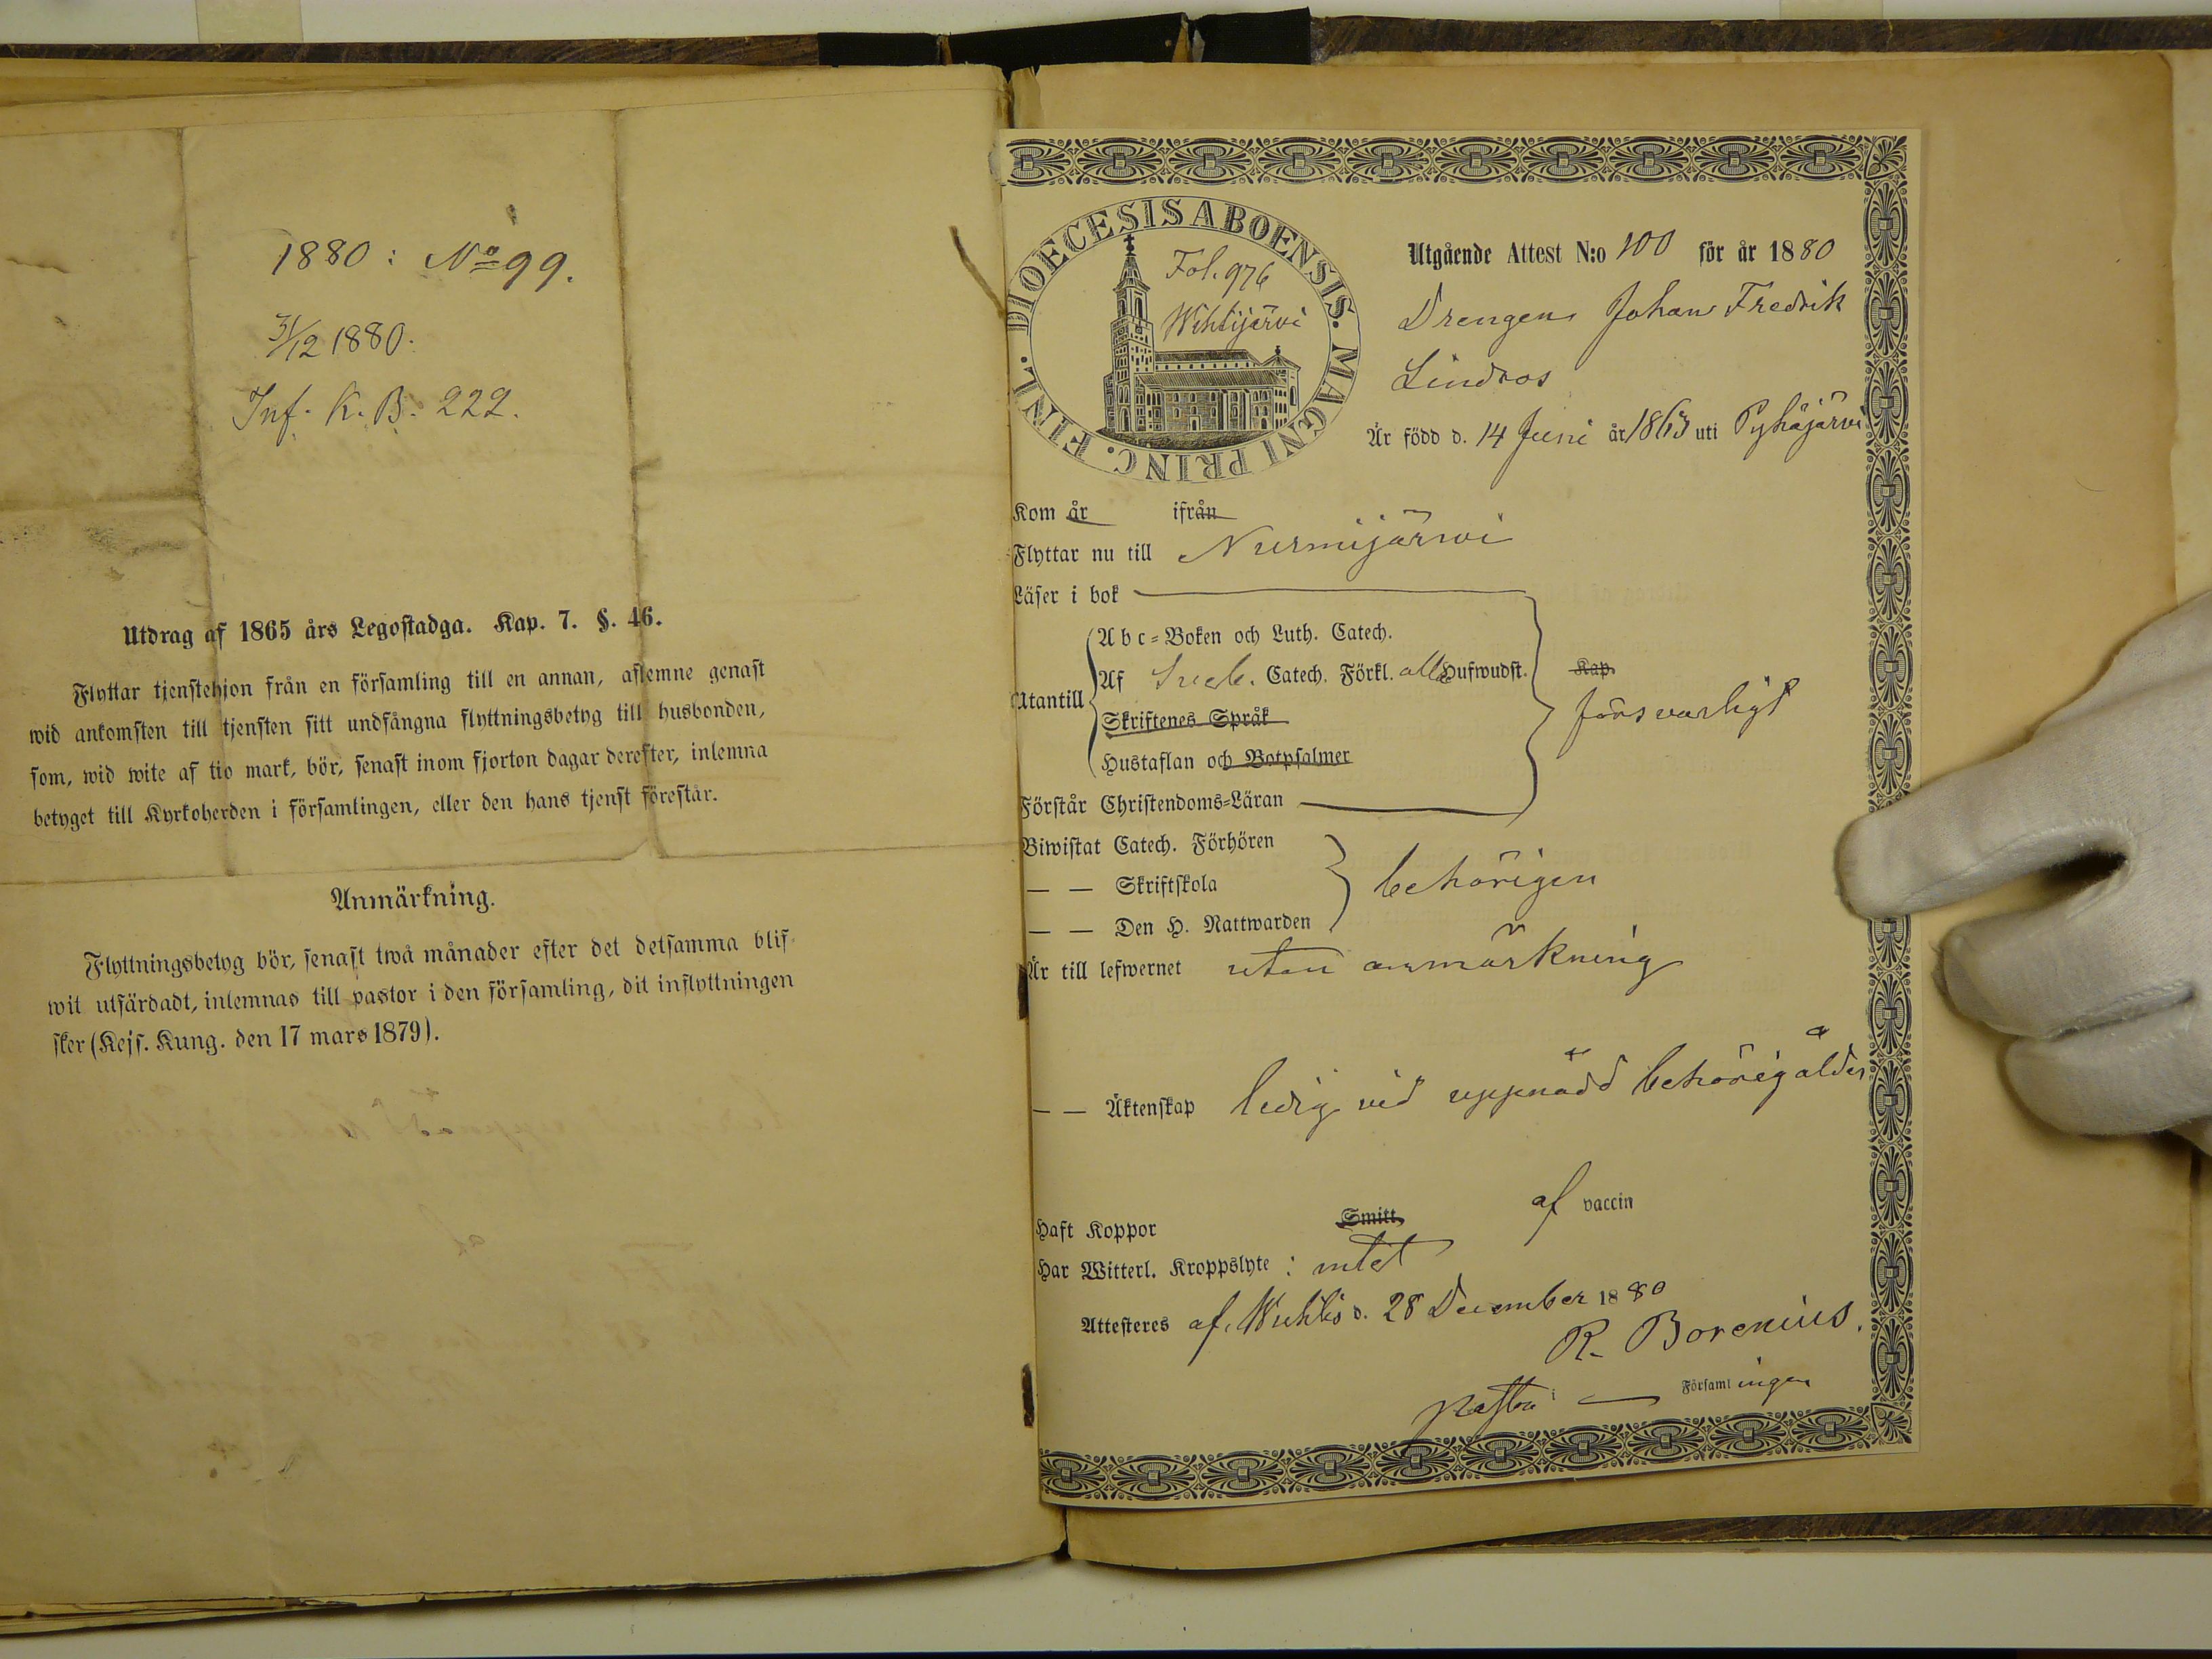 1880: No 99.
31/12 1880.
Inf. K. B. 222.
Utdrag af 1865 års Legostadga. Kap. 7. §. 46.
Flyttar tjenstehjon från en församling till en annan, aflemne genast
wid ankomsten till tjensten sitt undfångna flyttningsbetyg till husbonden,
som, wid wite af tio mark, bör, senast inom fjorton dagar derefter, inlemna
betyget till Kyrkoherden i församlingen, eller den hans tjenst förestår.
Anmärkning.
Flyttningsbetyg bör, senast twå månader efter det detsamma blif-
wit utfärdadt, inlemnas till pastor i den församling, dit inflyttningen
sker (Kejs. Kung. den 17 mars 1879).
DIOECESIS ABOENSIS. MAGNI PRINC. FINL.
Fol. 976
Wihtijärvi
Utgående Attest N:o 100 för år 1880
Drengen Johan Fredrik
Lindros
Är född d. 14 Juni år 1863 uti Pyhäjärvi
Kom år ifrån
Flyttar nu till Nurmijärwi
Läser i bok
Utantill
Abc=Boken och Luth. Catech.
Af Sveb. Catech. Förkl. alla Hufwudst.
Kap.
Skriftenes Språk
Hustaflan och Botpsalmer
försvarligt
Förstår Christendoms=Läran
Biwistat Catech. Förhören
— — Skriftskola
— — Den H. Nattwarden
behörigen
Är till lefwernet utan anmärkning
— — Äktenskap ledig vid uppnådd behörig ålder
Haft Koppor Smitt, af vaccin
Har Witterl. Kroppslyte: intet
Attesteres af Wichtis d. 28 December 1880
R. Borenius.
Pastor i — Församlingen